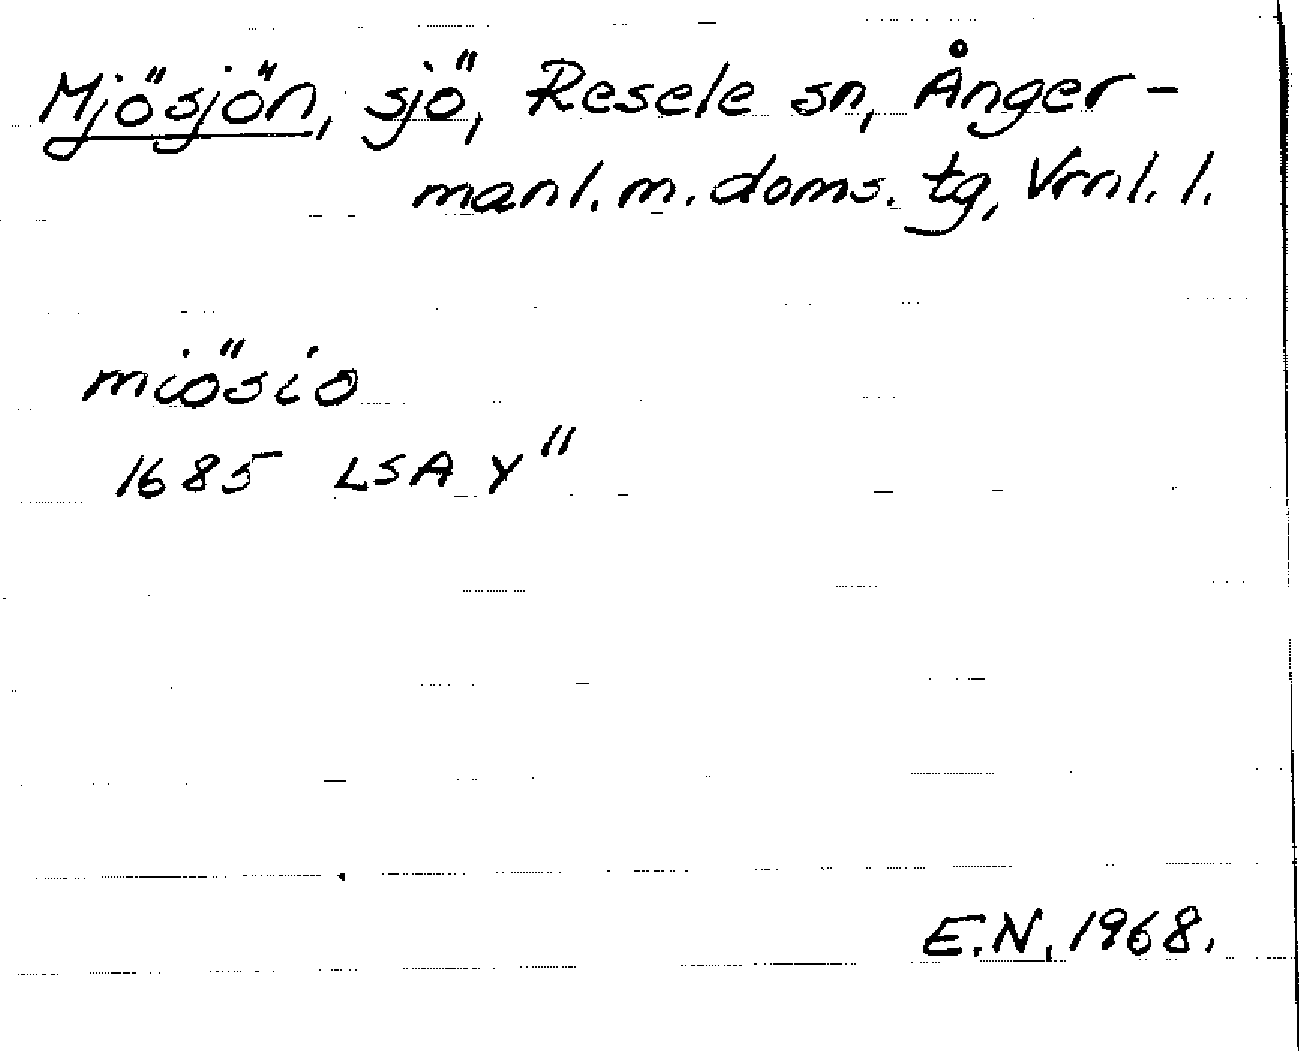 Mjösjön, sjö, Resele sn, Ånger-
manl. m. doms. tg, Vrnl. l.
miösio
1685 LSA Y"
E.N. 1968.